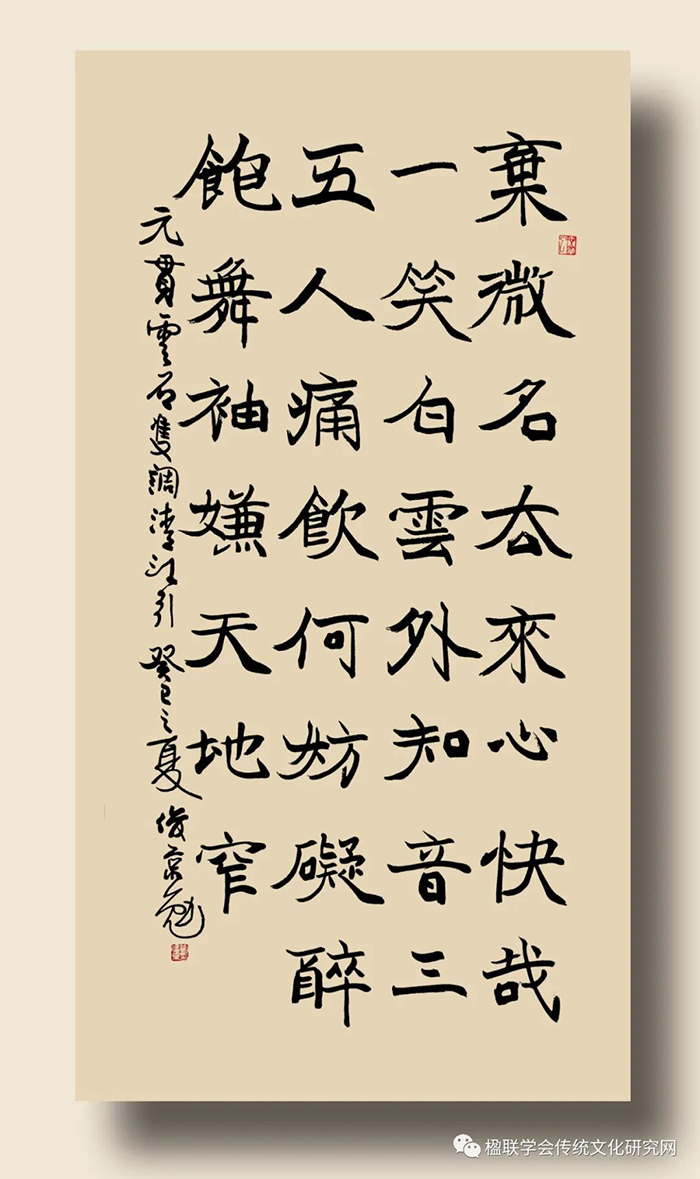 棄微名厺來心快哉
一笑白雲外知音三
五人痛飲何妨礙醉
飽舞袖嫌天地窄
元貫雲石隻調清江引 癸巳之夏 俊京
楹联学会传统文化研究网